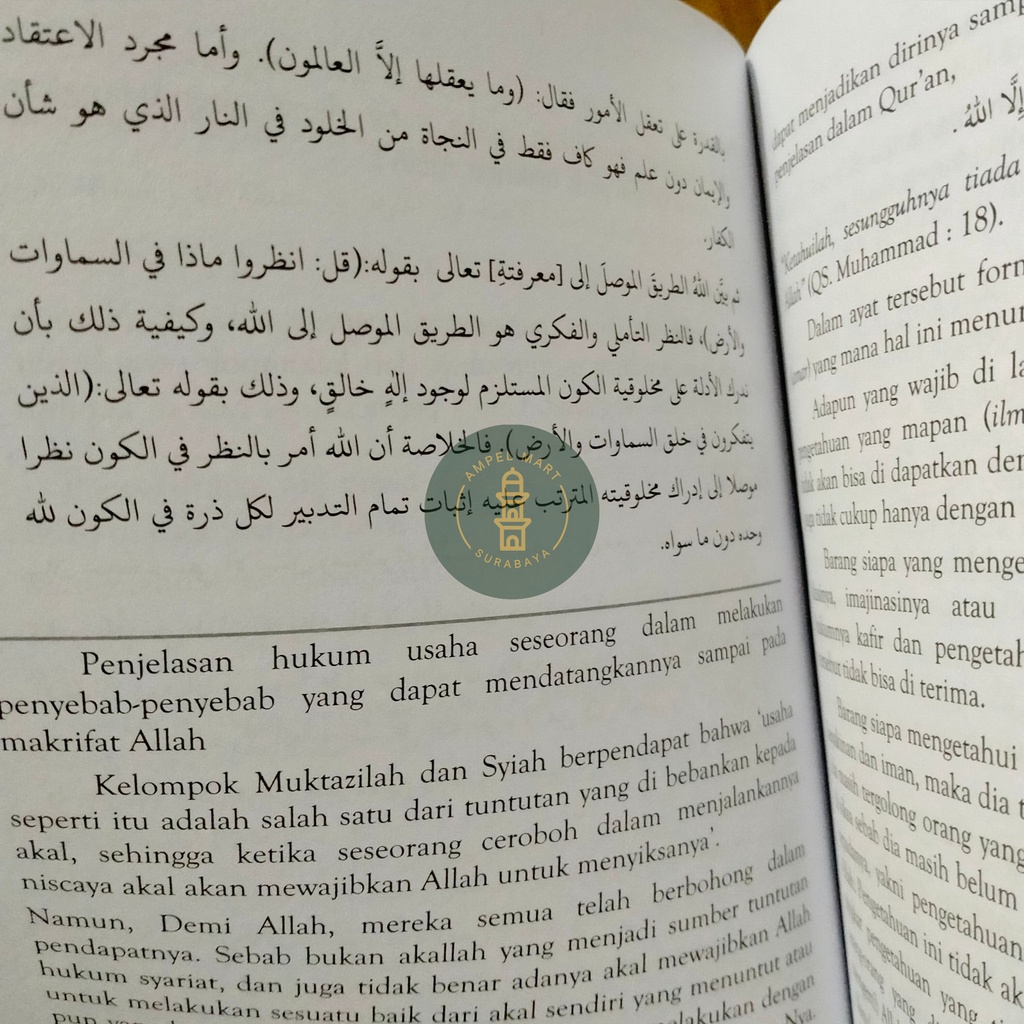 بالقدرة على تعقل الأمور فقال: (وما يعقلها إلاَّ العالمون). وأما مجرد الاعتقاد
والإيمان دون علم فهو كاف فقط في النجاة من الخلود في النار الذي هو شأن
الكفار.
ثم بيَّن اللهُ الطريقَ الموصلَ إلى [معرفتةِ] تعالى بقوله:(قل: انظروا ماذا في السماوات
والأرض)، فالنظر التأملي والفكري هو الطريق الموصل إلى الله، وكيفية ذلك بأن
ندرك الأدلة على مخلوقية الكون المستلزم لوجود إلهٍ خالقٍ، وذلك بقوله تعالى:(الذين
يتفكرون في خلق السماوات والأرض). فالخلاصة أن الله أمر بالنظر في الكون نظرا
موصلا إلى إدراك مخلوقيته المترتب عليه إثبات تمام التدبير لكل ذرة في الكون لله
وحده دون ما سواه.
AMPEL MART
SURABAYA
Penjelasan hukum usaha seseorang dalam melakukan
penyebab-penyebab yang dapat mendatangkannya sampai pada
makrifat Allah
Kelompok Muktazilah dan Syiah berpendapat bahwa 'usaha
seperti itu adalah salah satu dari tuntutan yang di bebankan kepada
akal, sehingga ketika seseorang ceroboh dalam menjalankannya
niscaya akal akan mewajibkan Allah untuk menyiksanya'.
Namun, Demi Allah, mereka semua telah berbohong dalam
pendapatnya. Sebab bukan akallah yang menjadi sumber tuntutan
hukum syariat, dan juga tidak benar adanya akal mewajibkan Allah
untuk melakukan sesuatu baik dari akal sendiri yang menuntut atau
pun melakukan dengan
Nya.
dapat menjadikan dirinya
penjelasan dalam Qur'an,
إِلَّا اللهُ .
"Ketahuilah, sesungguhnya tiada
Allah" (QS. Muhammad : 18).
Dalam ayat tersebut
yang mana hal ini
Adapun yang wajib di
pengetahuan yang mapan
tidak akan bisa di dapatkan
juga tidak cukup hanya dengan
Barang siapa yang
imajinasinya atau
hukumnya kafir dan
tersebut tidak bisa di terima.
Barang siapa mengetahui
dan iman, maka dia
masih tergolong orang yang
sebab dia masih belum
yakni pengetahuan
Pengetahuan ini tidak
pengetahuan yang
yang